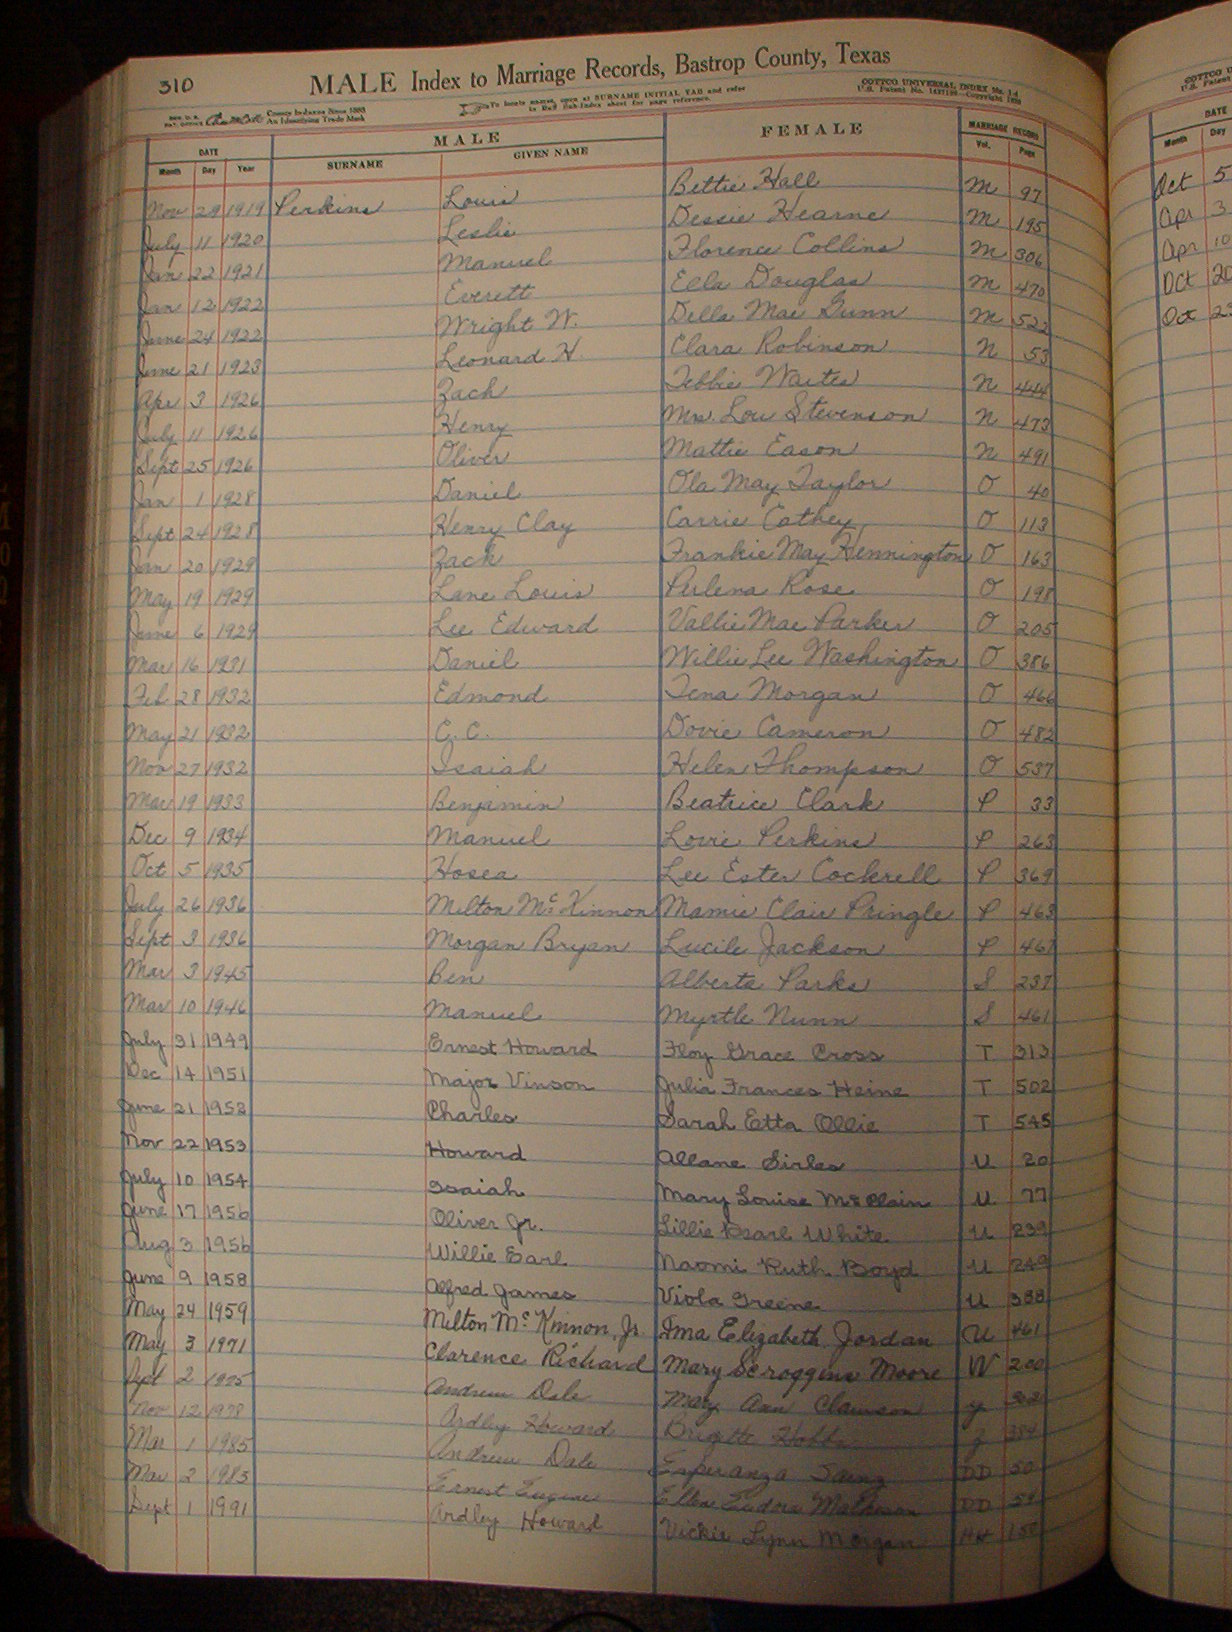 310
MALE Index to Marriage Records, Bastrop County, Texas
REG. U.S. PAT. OFFICE County Indexes Since 1888 An Identifying Trade Mark
To locate names, open at SURNAME INITIAL TAB and refer to Red Sub-Index sheet for page reference.
COTTCO UNIVERSAL INDEX
U.S. Patent No. Copyright
DATE MALE FEMALE MARRIAGE RECORD
Month Day Year SURNAME GIVEN NAME Vol. Page
Nov 29 1919 Perkins Louis Bettie Hall M 97
July 11 1920 Leslie Dessie Hearne M 195
Jan 22 1921 Manuel Florence Collins M 306
Jan 12 1922 Everett Ella Douglas M 470
June 24 1922 Wright W. Della Mae Gunn M 522
June 21 1923 Leonard H. Clara Robinson N 53
Apr 3 1926 Zack Tebbie Waites N 444
July 11 1926 Henry Mrs. Lou Stevenson N 473
Sept 25 1926 Oliver Mattie Eason N 491
Jan 1 1928 Daniel Ola May Taylor O 40
Sept 24 1928 Henry Clay Carrie Cathey O 113
Jan 20 1929 Zack Frankie May Hennington O 163
May 19 1929 Lane Louis Perlena Rose O 198
June 6 1929 Lee Edward Vallie Mae Parker O 205
Mar 16 1931 Daniel Willie Lee Washington O 386
Feb 28 1932 Edmond Tena Morgan O 466
May 21 1932 C. C. Dovie Cameron O 482
Nov 27 1932 Isaiah Helen Thompson O 537
Mar 19 1933 Benjamin Beatrice Clark P 33
Dec 9 1934 Manuel Lovie Perkins P 263
Oct 5 1935 Hosea Lee Ester Cockrell P 369
July 26 1936 Milton McKinnon Mamie Clair Pringle P 463
Sept 3 1936 Morgan Bryan Lucile Jackson P 467
Mar 3 1945 Ben Alberta Parks S 237
Mar 10 1946 Manuel Myrtle Nunn S 461
July 31 1949 Ernest Howard Floy Grace Cross T 313
Dec 14 1951 Major Vinson Julia Frances Heine T 502
June 21 1952 Charles Sarah Etta Ollie T 545
Nov 22 1953 Howard Allane Sirles U 20
July 10 1954 Isaiah Mary Louise McClain U 77
June 17 1956 Oliver Jr. Lillie Pearl White U 239
Aug 3 1956 Willie Earl Naomi Ruth Boyd U 249
June 9 1958 Alfred James Viola Greene U 388
May 24 1959 Milton McKinnon, Jr. Ima Elizabeth Jordan U 461
May 3 1971 Clarence Richard Mary Scroggins Moore W 200
Sept 2 Andrew Dale Mary Ann Clawson Y
Nov 12 1978 Ardley Howard Brigitte Z
Mar 1 1985 Andrew Dale Esperanza Saenz DD 50
Mar 2 1985 Ernest Eugene Ellen Eudora Matheson DD 54
Sept 1 1991 Ardley Howard Vickie Lynn Morgan HH 150
DATE
Month Day
Oct 5
Apr 3
Apr 10
Oct 20
Oct